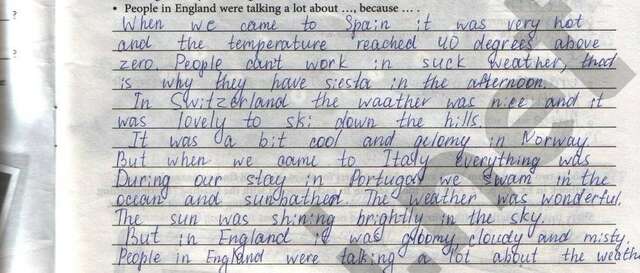 • People in England were talking a lot about ..., because ... .
When we came to Spain it was very hot
and the temperature reached 40 degrees above
zero. People can't work in suck weather, that
is why they have siesta in the afternoon.
In Switzerland the waather was nice and it
was lovely to ski down the hills.
It was a bit cool and gelomy in Norway.
But when we came to Italy everything was
During our stay in Portugal we swam in the
ocean and sunbathed. The weather was wonderful.
The sun was shining brightly in the sky.
But in England it was gloomy, cloudy and misty.
People in England were talking a lot about the weath